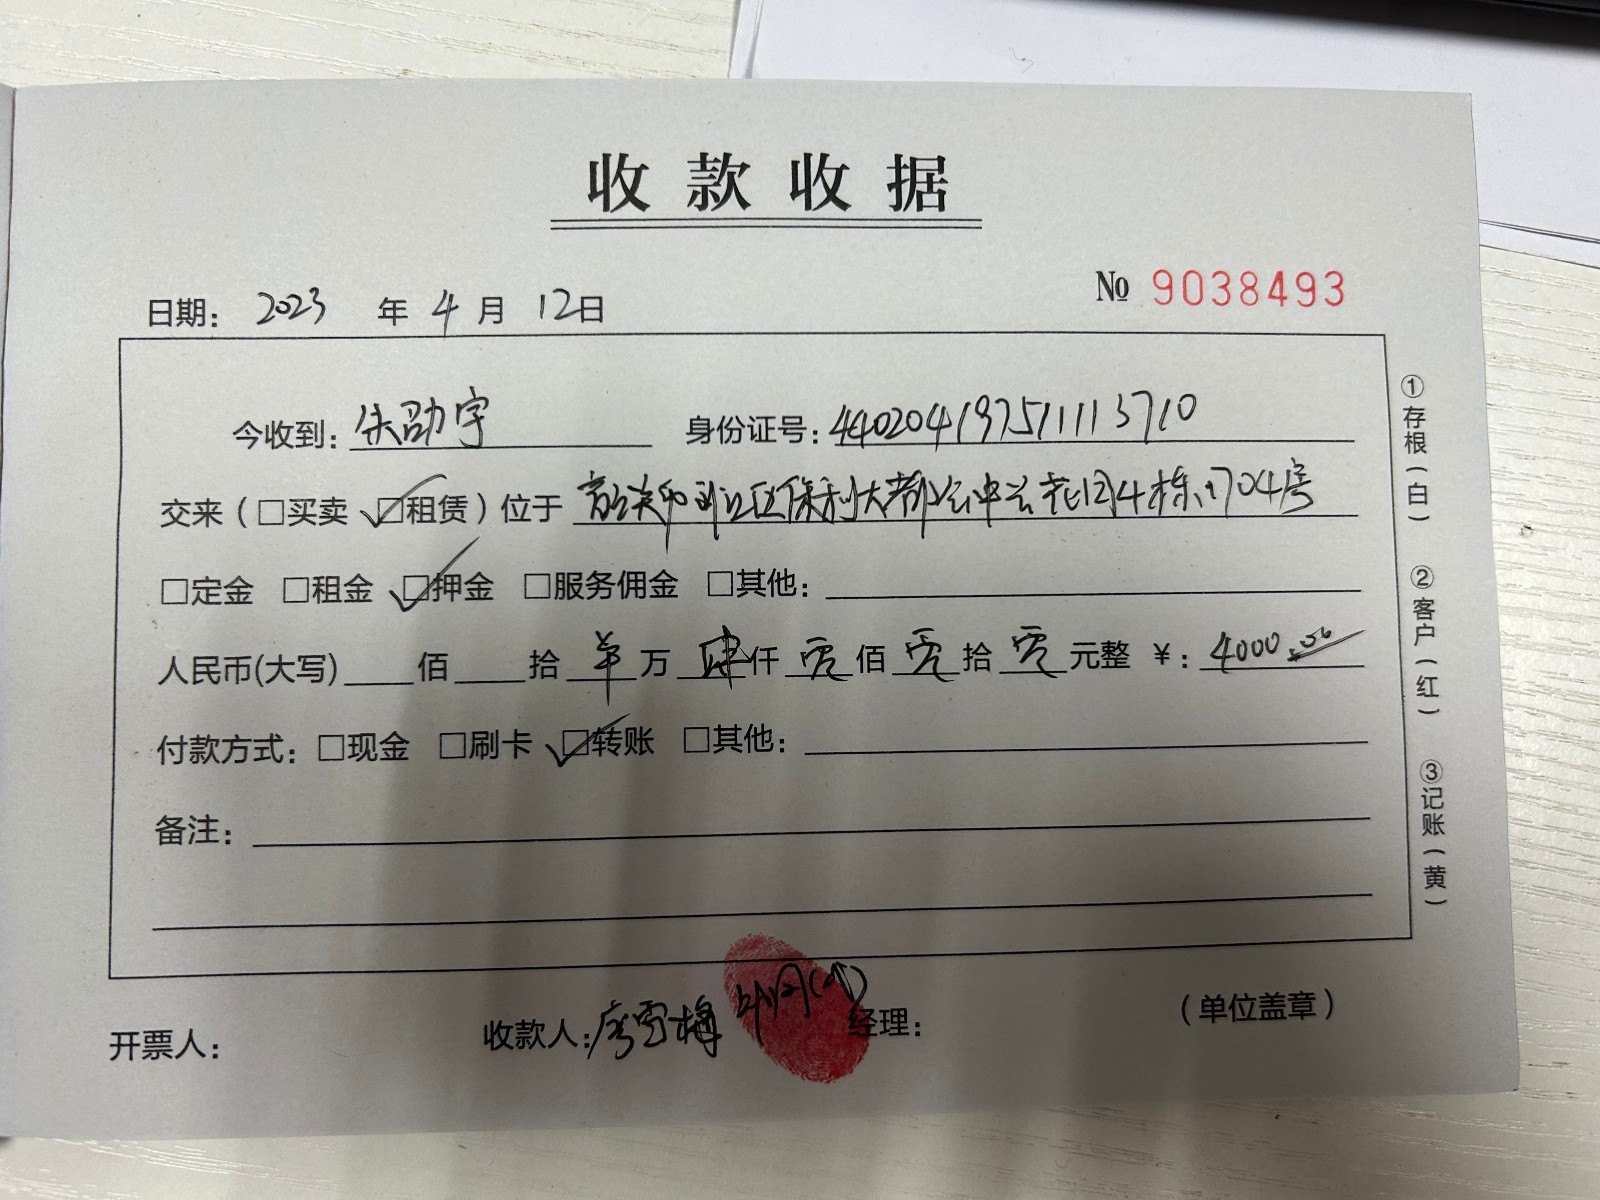 收款收据
№ 9038493
日期： 2023 年 4 月 12日
今收到： 朱劭宇 身份证号： 440204197511113710
交来（□买卖 ☑租赁）位于 韶关市浈江区保利大都汇中兰花园4栋1704号
□定金 □租金 ☑押金 □服务佣金 □其他：
人民币(大写) 佰 拾 羊 万 肆 仟 零 佰 零 拾 零 元整 ￥： 4000.00
付款方式： □现金 □刷卡 ☑转账 □其他：
备注：
开票人： 收款人： 廖雪梅 经理： （单位盖章）
①存根（白） ②客户（红） ③记账（黄）